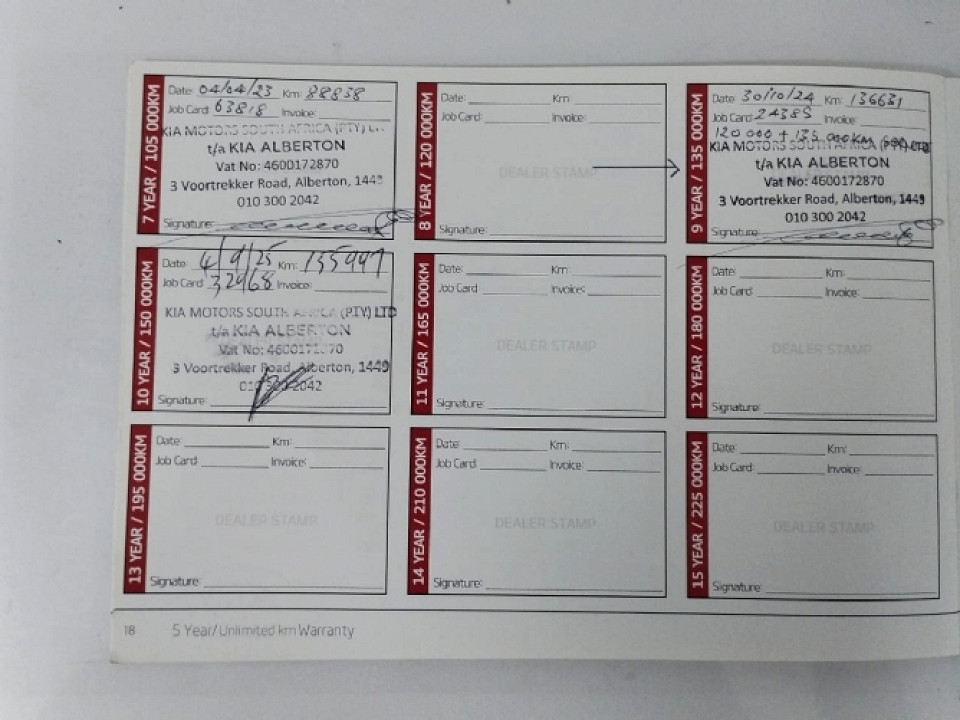 7 YEAR / 105 000KM
Date: 04/04/23 Km: 88838
Job Card: 63818 Invoice:
KIA MOTORS SOUTH AFRICA (PTY) LTD
t/a KIA ALBERTON
Vat No: 4600172870
3 Voortrekker Road, Alberton, 1449
010 300 2042
Signature:
8 YEAR / 120 000KM
Date: Km:
Job Card: Invoice:
DEALER STAMP
Signature:
9 YEAR / 135 000KM
Date: 30/10/24 Km: 136631
Job Card: 24385 Invoice:
120 000 + 135 000KM
KIA MOTORS SOUTH AFRICA (PTY) LTD
t/a KIA ALBERTON
Vat No: 4600172870
3 Voortrekker Road, Alberton, 1449
010 300 2042
Signature:
10 YEAR / 150 000KM
Date: 4/9/25 Km: 155997
Job Card: 32968 Invoice:
KIA MOTORS SOUTH AFRICA (PTY) LTD
t/a KIA ALBERTON
Vat No: 4600172870
3 Voortrekker Road, Alberton, 1449
010 300 2042
Signature:
11 YEAR / 165 000KM
Date: Km:
Job Card: Invoice:
DEALER STAMP
Signature:
12 YEAR / 180 000KM
Date: Km:
Job Card: Invoice:
DEALER STAMP
Signature:
13 YEAR / 195 000KM
Date: Km:
Job Card: Invoice:
DEALER STAMP
Signature:
14 YEAR / 210 000KM
Date: Km:
Job Card: Invoice:
DEALER STAMP
Signature:
15 YEAR / 225 000KM
Date: Km:
Job Card: Invoice:
DEALER STAMP
Signature:
18 5 Year/Unlimited km Warranty